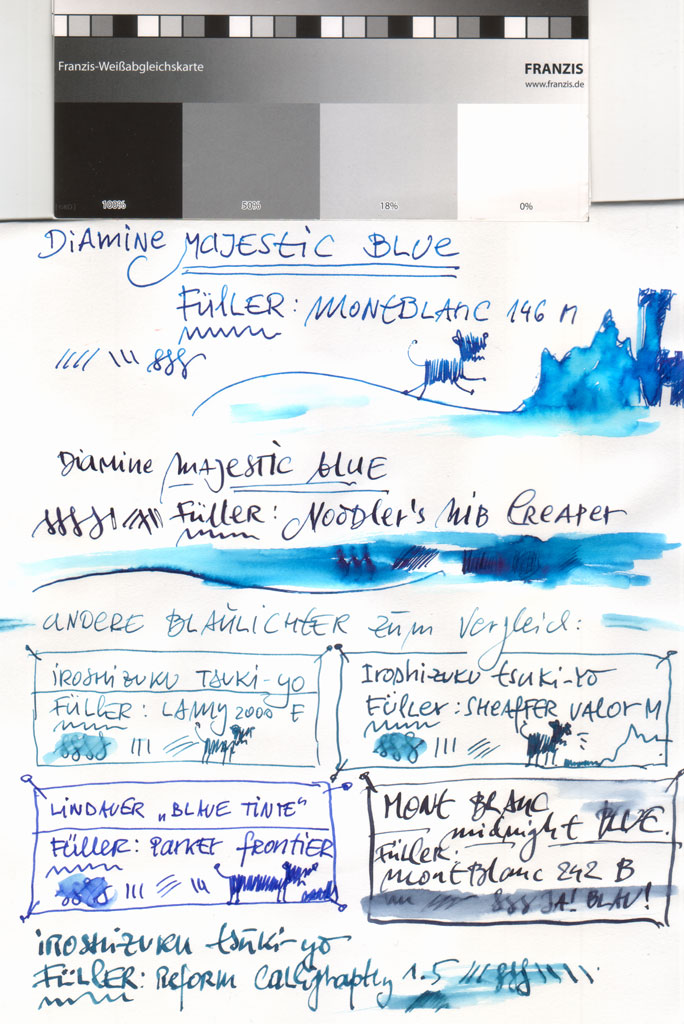 Franzis-Weißabgleichskarte
FRANZIS
www.franzis.de
100%
50%
18%
0%
Diamine Majestic Blue
Füller: Montblanc 146 M
Diamine Majestic Blue
Füller: Noodler's Nib Creaper
andere Blaulichter zum Vergleich:
iroshizuku tsuki-yo
Füller: Lamy 2000 F
Iroshizuku tsuki-yo
Füller: Sheaffer Valor M
Lindauer „Blaue Tinte"
Füller: Parker Frontier
Mont Blanc
midnight Blue.
Füller:
MontBlanc 242 B
JA! BLAU!
iroshizuku tsuki-yo
Füller: Reform Calligraphy 1.5